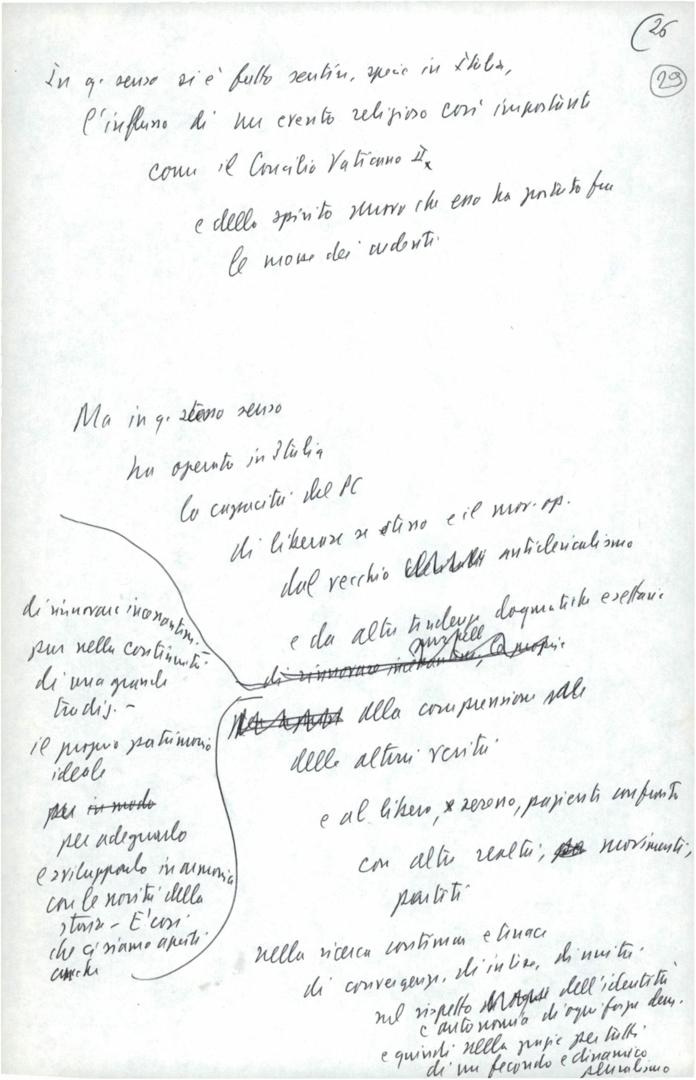 (26
29
In q. senso si è fatto sentire, specie in Italia,
l'influsso di un evento religioso così importante
come il Concilio Vaticano II
e dello spirito nuovo che esso ha portato fra
le masse dei credenti.
Ma in q. stesso senso
ha operato in Italia
la capacità del PC
di liberare se stesso e il mov. op.
dal vecchio anticlericalismo
e da altre tendenze dogmatiche e settarie
di rinnovare incessantem.
pur nella continuità
di una grande
tradiz. -
il proprio patrimonio
ideale
per in modo
per adeguarlo
e svilupparlo in armonia
con le novità della
storia - E' così
che ci siamo aperti
anche
di rinnovare incessantem., il proprio
della comprensione
delle altrui verità
e al libero, sereno, paziente confronto
con altre realtà, movimenti,
partiti
nella ricerca continua e tenace
di convergenze, di intese, di unità
nel rispetto dell'identità
e autonomia di ogni forza dem.
e quindi nella per tutti
di un fecondo e dinamico
pluralismo